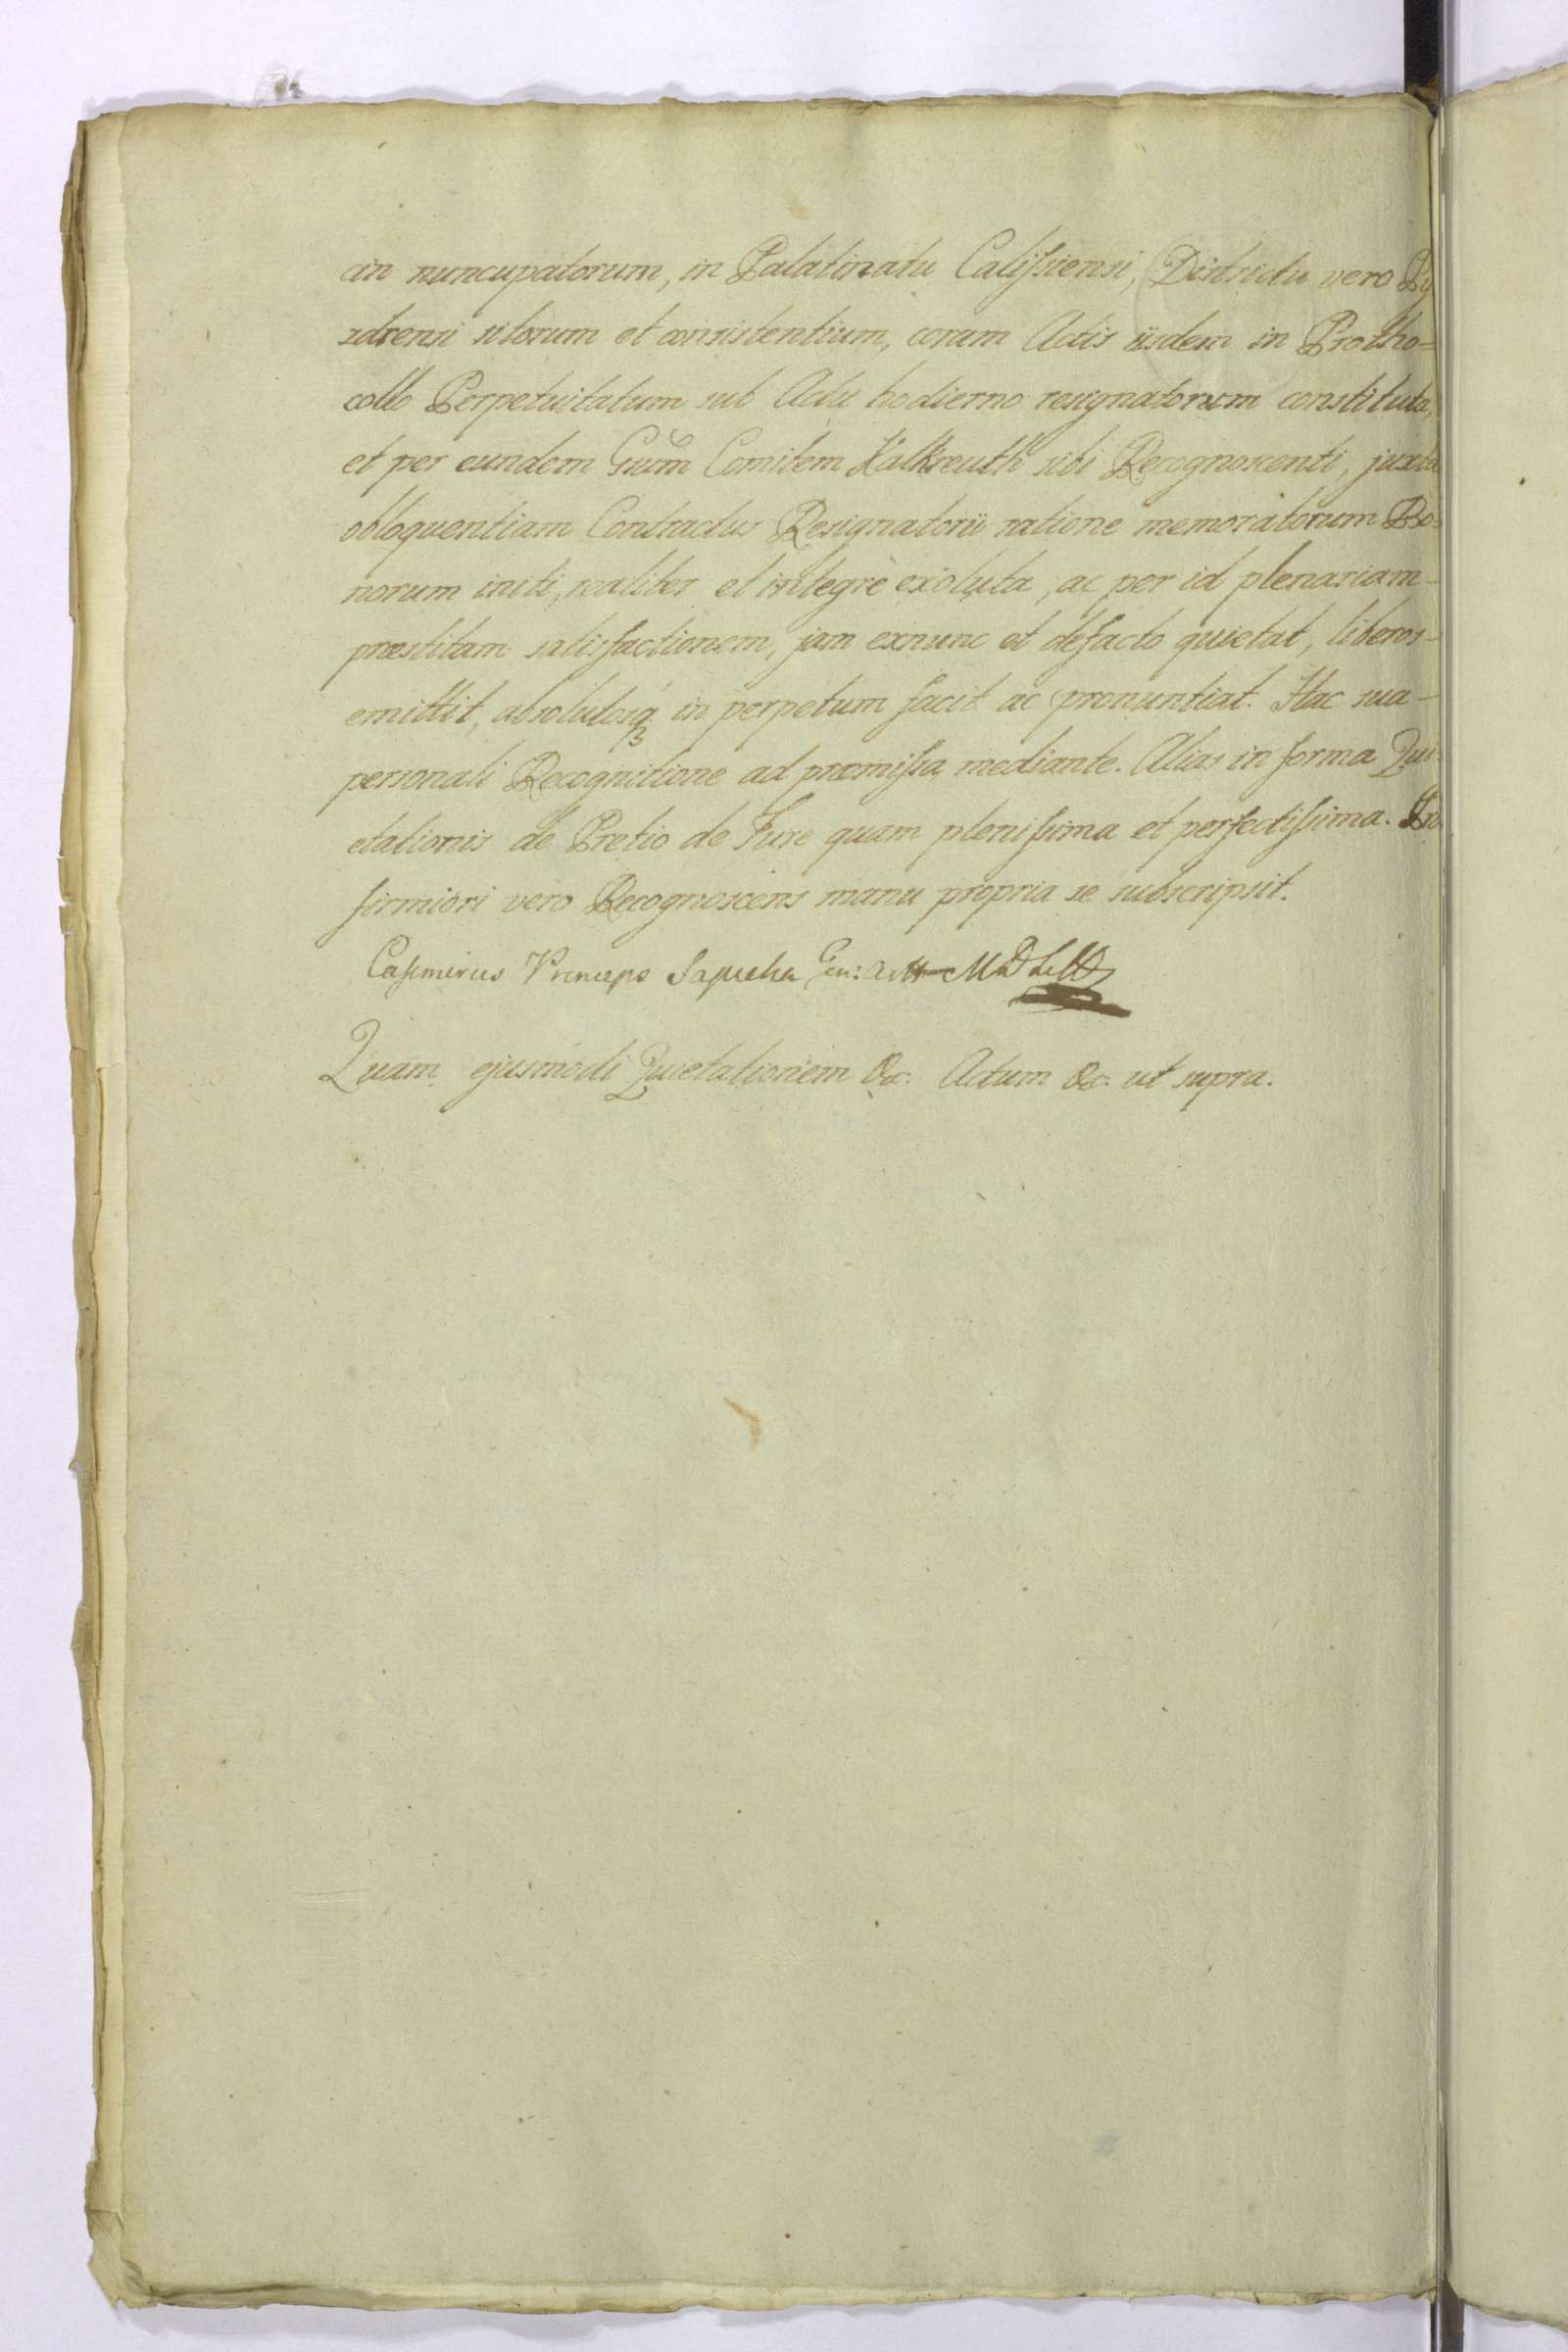 cin nuncupatorum, in Palatinatu Calissiensi, Districtu vero Py
zdrensi sitorum et consistentium, coram Actis iisdem in Protho=
collo Perpetuitatum sub Actu hodierno resignatorum constituta,
et per eundem Gnum Comitem Kalkreuth sibi Recognoscenti, juxta
obloquentiam Contractus Resignatorii ratione memoratorum Bo=
norum initi, realiter et integrè exoluta, ac per id plenariam-
præstitam satisfactionem, jam exnunc et defacto quietat, liberos-
emittit, absolutosq3 in perpetum facit ac pronuntiat. Hac sua-
personali Recognitione ad præmissa mediante. Alias in forma Qui-
etationis de Pretio de Jure quam plenissima et perfectissima. In
firmiori vero Recognoscens manu propria se subscripsit.
Casimirus Princeps Sapieha Gen: MDL
Quam ejusmodi Quietationem &c. Actum &c. ut supra.